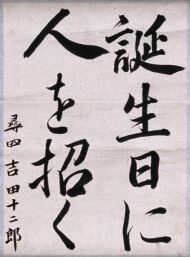 誕生日に
人を招く
尋四 吉田十二郎